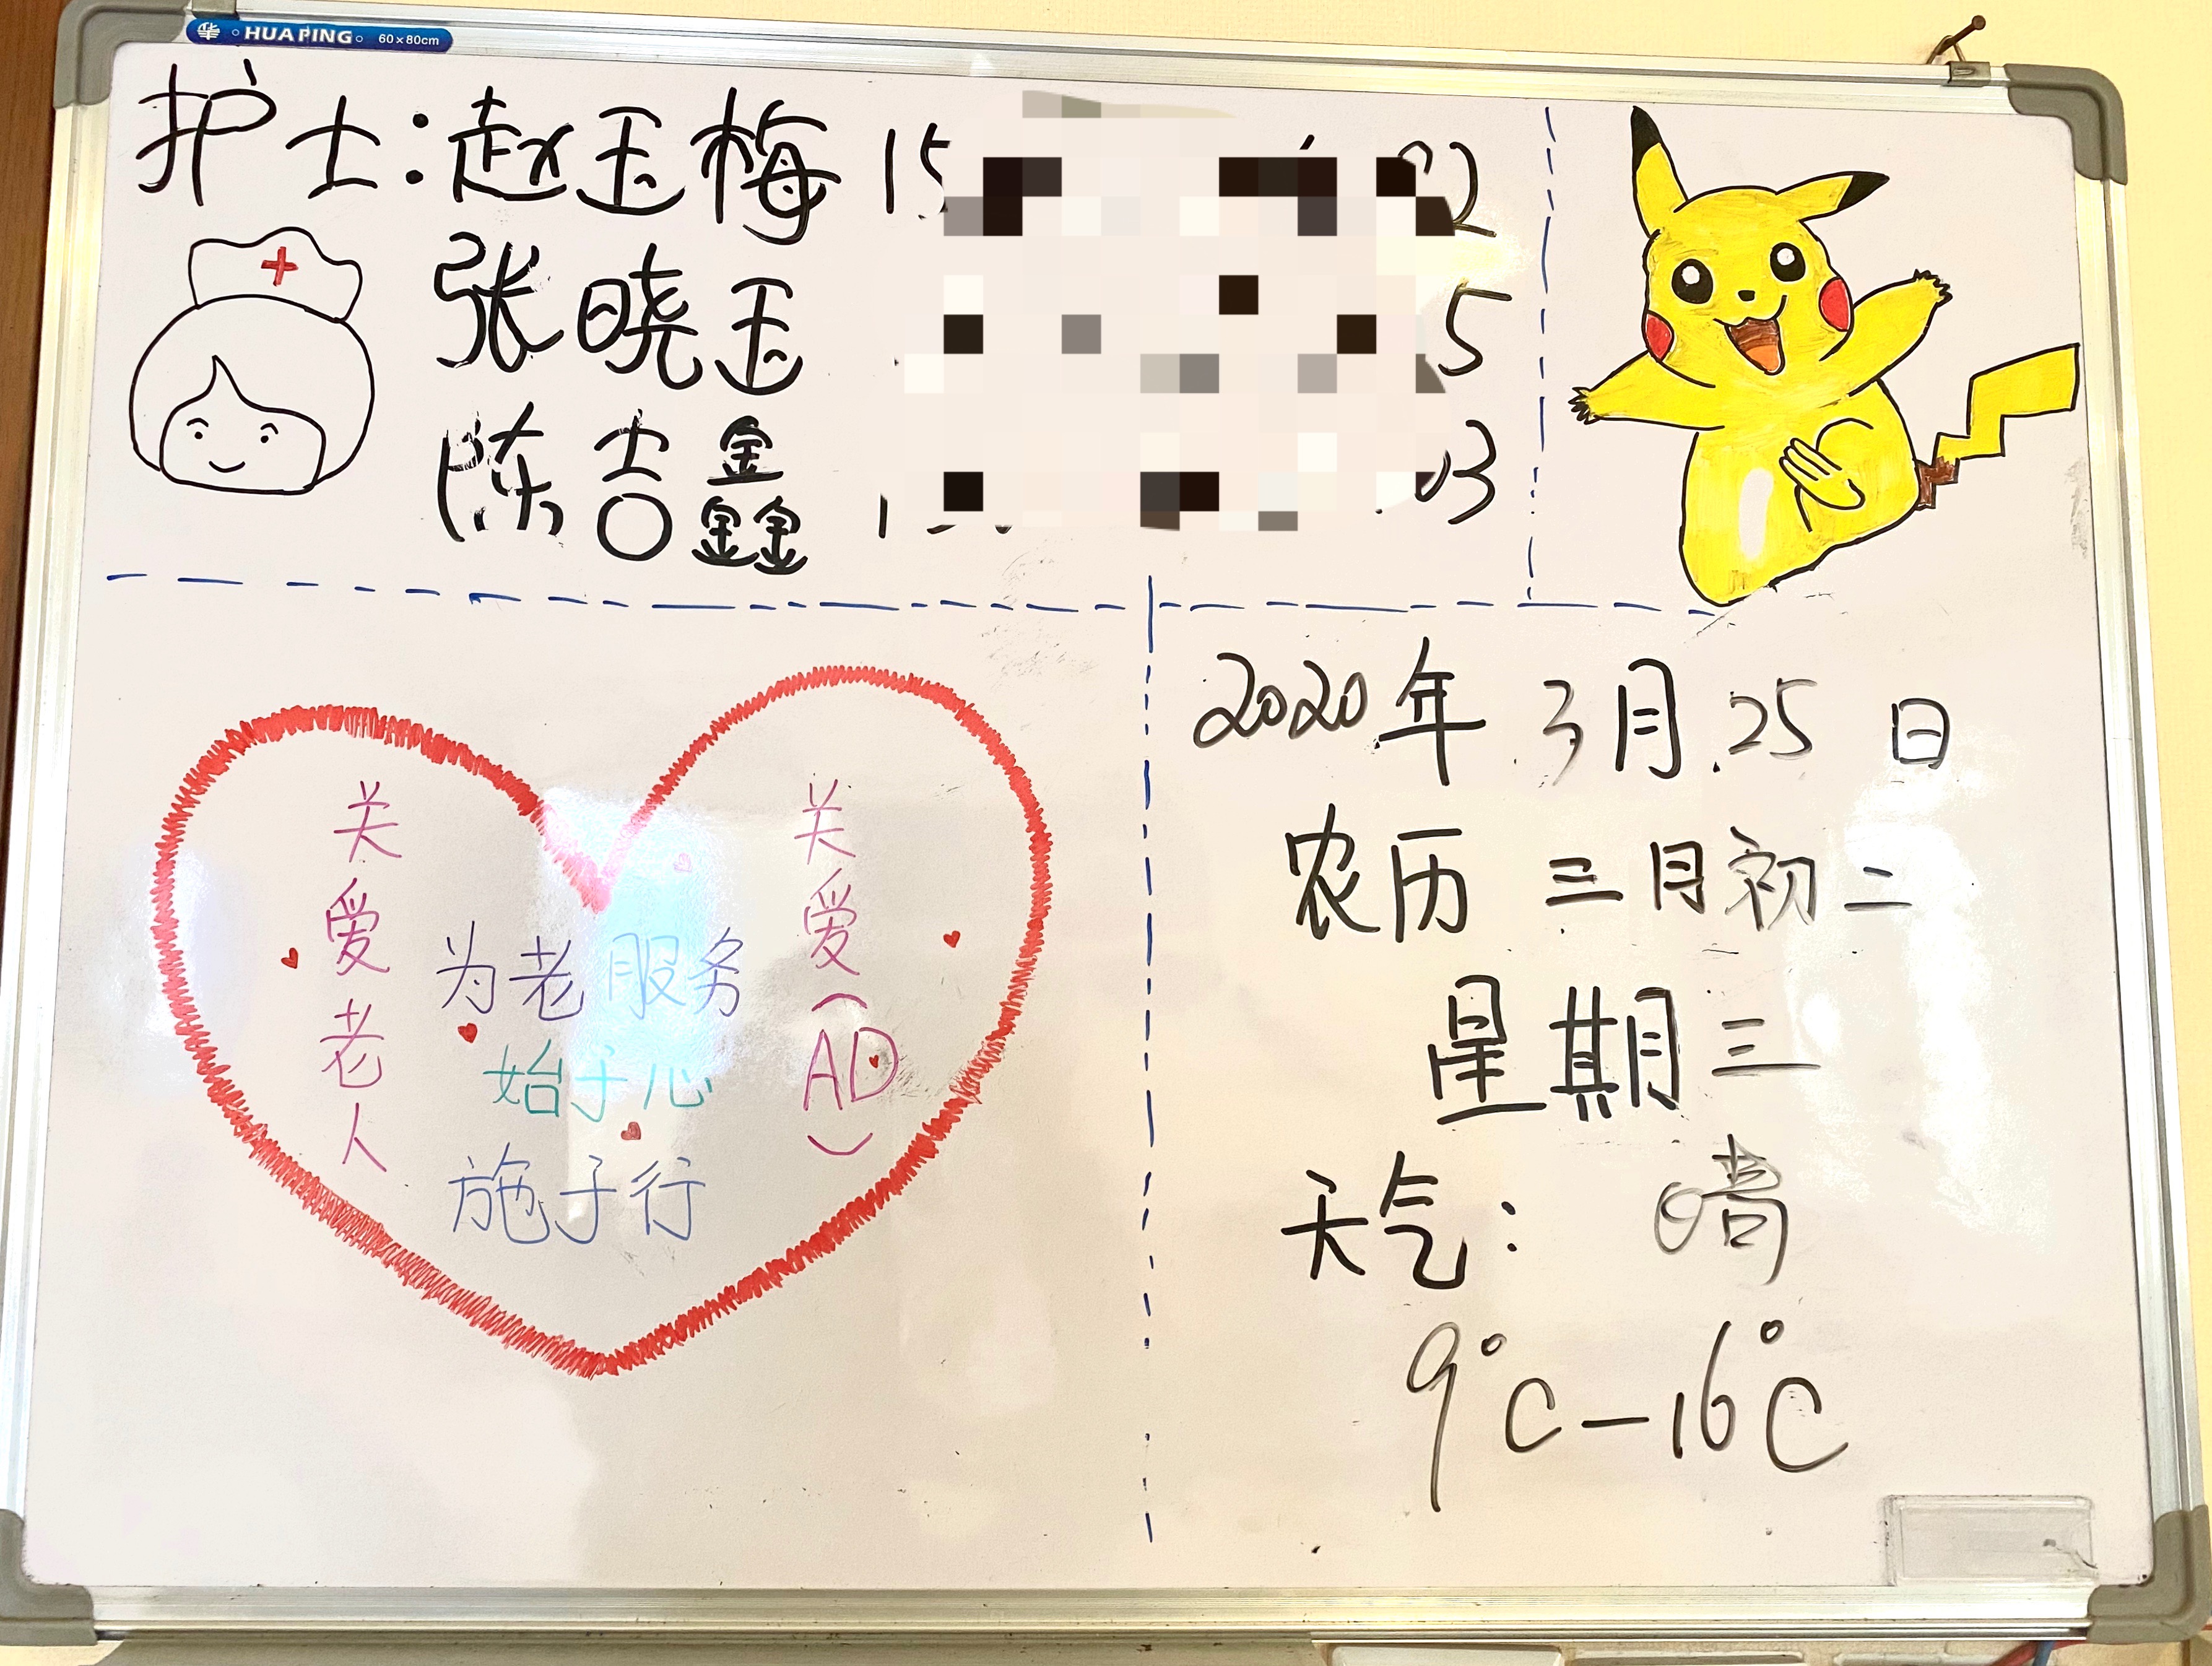 HUAPING 60×80cm
护士:赵玉梅 15
张晓玉 5
陈吉鑫
关爱老人
为老服务
始于心
施于行
关爱(AD)
2020年3月25日
农历 三月初二
星期三
天气: 晴
9°C-16°C